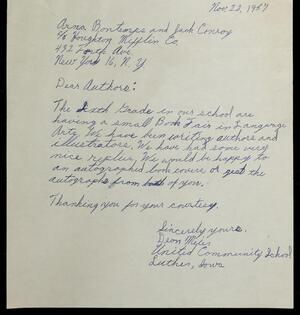 Nov. 22, 1957
Arna Bontemps and Jack Conroy
c/o Houghton Mifflin Co.
432 Fourth Ave.
New York 16, N.Y.
Dear Authors:
The Sixth Grade in our school are
having a small Book Fair in Language
Arts. We have been writing authors and
illustrators. We have had some very
nice replies. We would be happy to
an autographed book cover or get the
autographs from both of you.
Thanking you for your courtesy.
Sincerely yours,
United Community School
Luther, Iowa